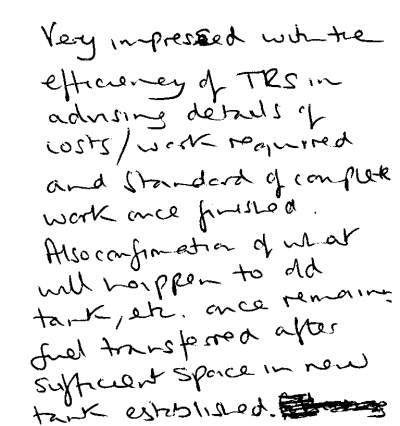 Very impressed with the
efficiency of TRS in
advising details of
costs/work required
and standard of complete
work once finished.
Also confirmation of what
will happen to old
tank, etc. once remaining
fuel transferred after
sufficient space in new
tank established.